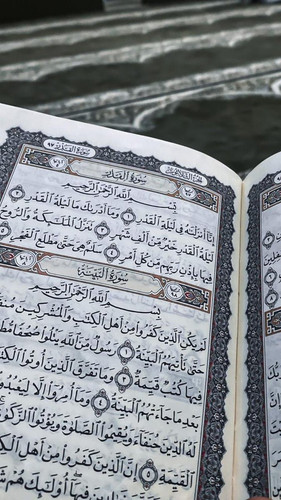 سُورَةُ القَدْرِ ٩٧
الجُزْءُ الثَّلَاثُونَ
سُورَةُ القَدْرِ
بِسْمِ اللَّهِ الرَّحْمَٰنِ الرَّحِيمِ
إِنَّا أَنزَلْنَاهُ فِي لَيْلَةِ الْقَدْرِ ۝١ وَمَا أَدْرَاكَ مَا لَيْلَةُ الْقَدْرِ ۝٢
لَيْلَةُ الْقَدْرِ خَيْرٌ مِّنْ أَلْفِ شَهْرٍ ۝٣ تَنَزَّلُ الْمَلَائِكَةُ وَالرُّوحُ
فِيهَا بِإِذْنِ رَبِّهِم مِّن كُلِّ أَمْرٍ ۝٤ سَلَامٌ هِيَ حَتَّىٰ مَطْلَعِ الْفَجْرِ ۝٥
سُورَةُ البَيِّنَةِ
بِسْمِ اللَّهِ الرَّحْمَٰنِ الرَّحِيمِ
لَمْ يَكُنِ الَّذِينَ كَفَرُوا مِنْ أَهْلِ الْكِتَابِ وَالْمُشْرِكِينَ مُنفَكِّينَ
حَتَّىٰ تَأْتِيَهُمُ الْبَيِّنَةُ ۝١ رَسُولٌ مِّنَ اللَّهِ يَتْلُو صُحُفًا مُّطَهَّرَةً ۝٢
فِيهَا كُتُبٌ قَيِّمَةٌ ۝٣ وَمَا تَفَرَّقَ الَّذِينَ أُوتُوا الْكِتَابَ
بَعْدِ مَا جَاءَتْهُمُ الْبَيِّنَةُ ۝٤ وَمَا أُمِرُوا إِلَّا لِيَعْبُدُوا
لَهُ الدِّينَ حُنَفَاءَ وَيُقِيمُوا الصَّلَاةَ وَيُؤْتُوا الزَّكَاةَ
الْقَيِّمَةِ ۝٥ إِنَّ الَّذِينَ كَفَرُوا مِنْ أَهْلِ
فِيهَا أُولَٰئِكَ هُمْ